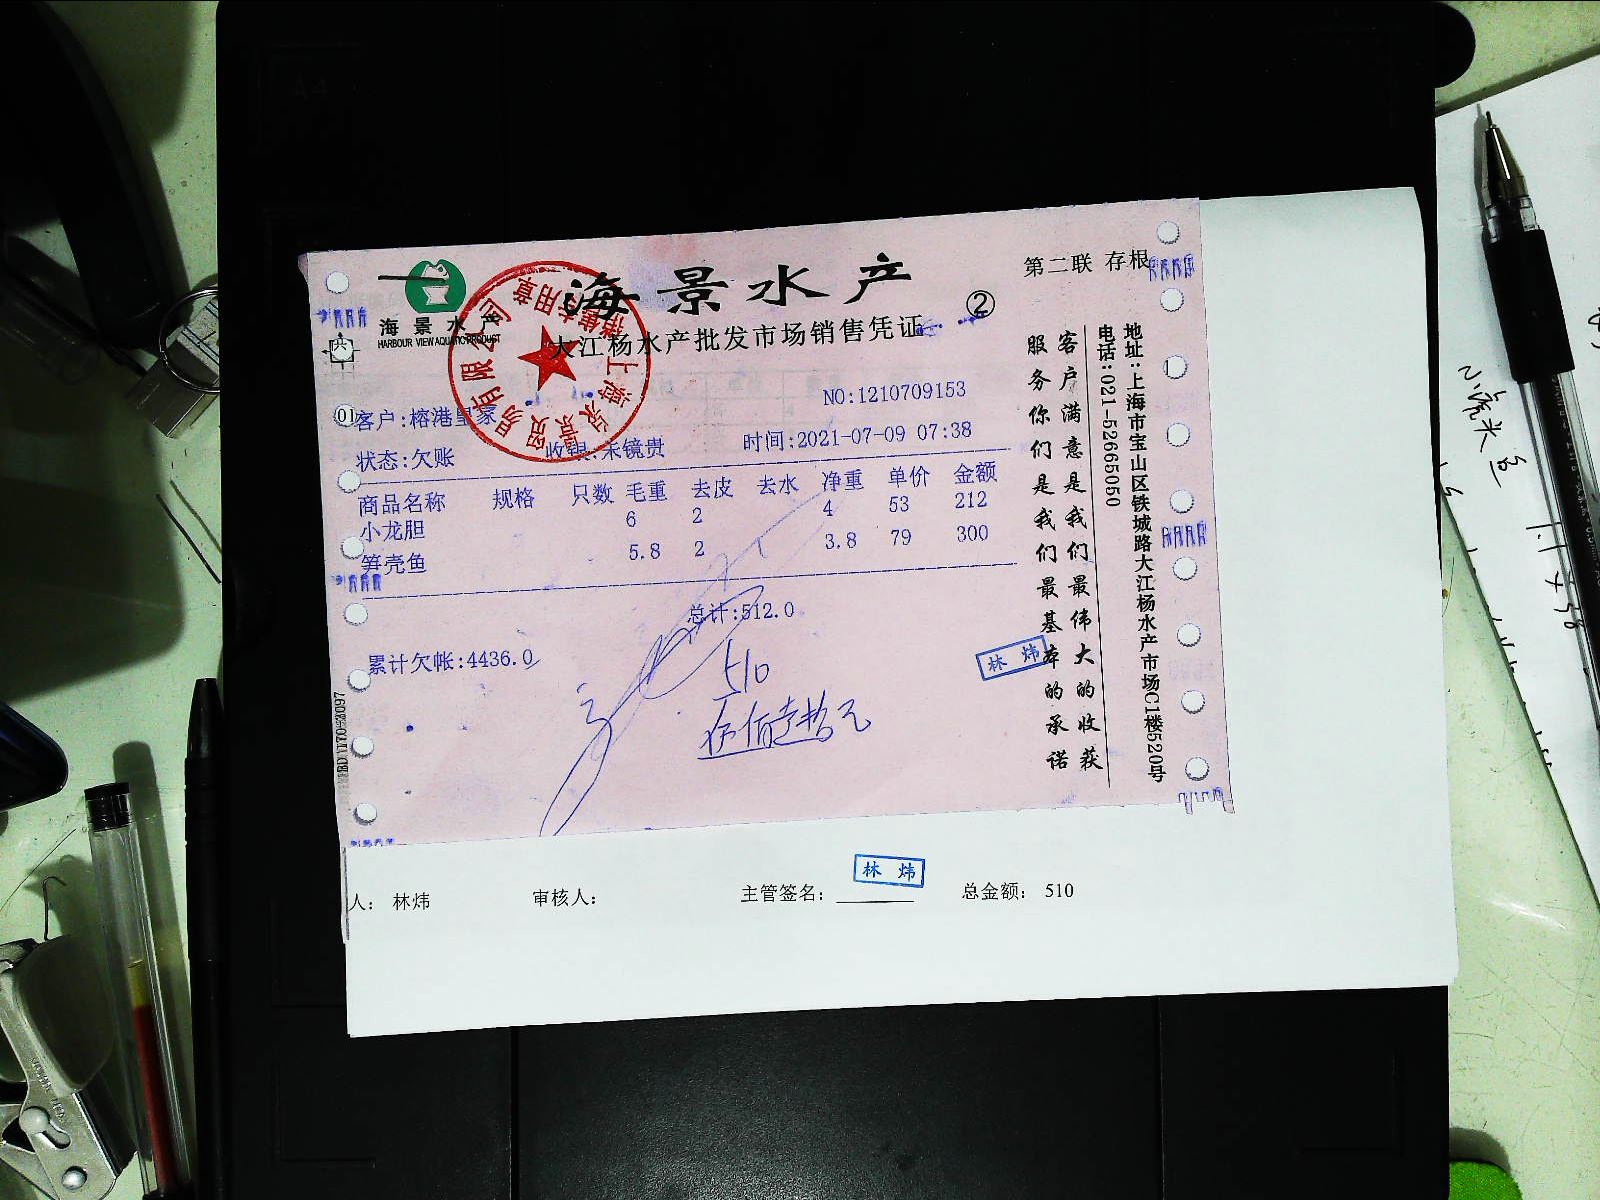 海景水产
第二联 存根
②
海景水产
HARBOUR VIEW AQUATIC PRODUCT
大江杨水产批发市场销售凭证
NO:1210709153
客户:榕港皇家
状态:欠账
时间:2021-07-09 07:38
商品名称 规格 只数 毛重 去皮 去水 净重 单价 金额
小龙胆 6 2 4 53 212
笋壳鱼 5.8 2 3.8 79 300
总计:512.0
累计欠帐:4436.0
510
伍佰壹拾元
林 炜
客户满意是我们最伟大的收获
服务你们是我们最基本的承诺
地址:上海市宝山区铁城路大江杨水产市场C1楼520号
电话:021-52665050
人: 林炜 审核人: 主管签名: 林 炜 总金额: 510